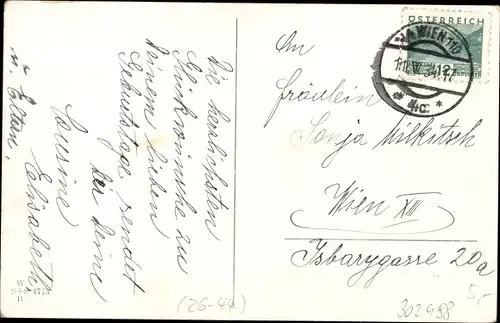 Die herzlichsten
Glückwünsche zu
Deinem lieben
Geburtstage sendet
Dir Deine
Cousine Elisabeth
u. Eltern.
ÖSTERREICH
WIEN 110
12
* 4c *
An
Fräulein
Sonja Milkitsch
Wien XIII
Isbarygasse 20a
(26-44)
302498
5,-